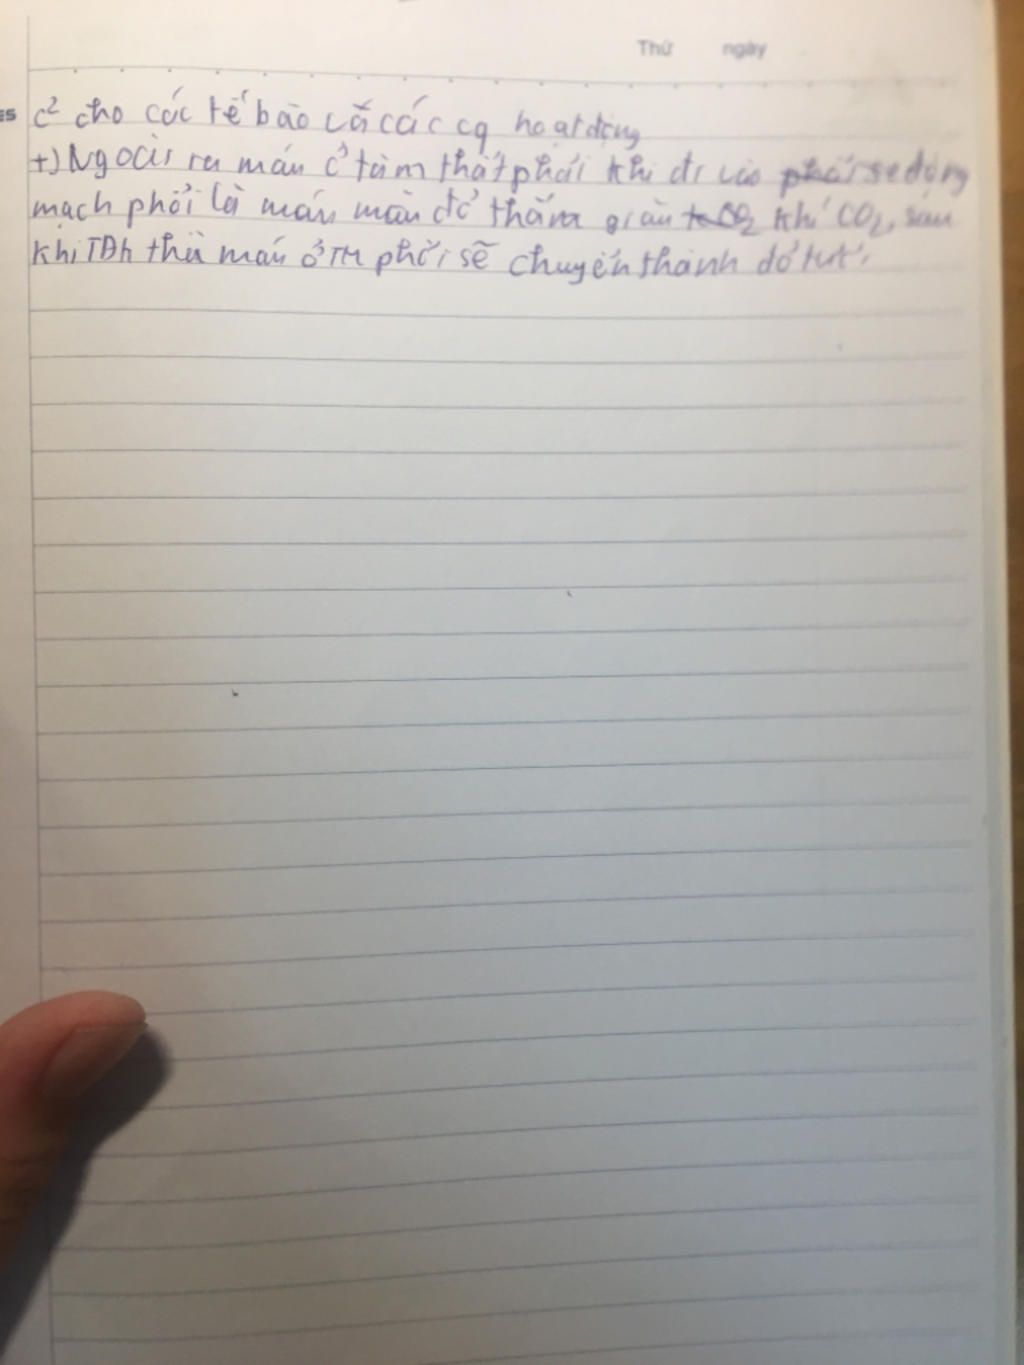 Thứ ngày
ES
c² cho các tế bào và các cq hoạt động
+) Ngoài ra máu ở tâm thất phải khi đi vào phổi sẽ động
mạch phổi là máu màu đỏ thẫm giàu CO2 khí CO2, sau
khi TĐk thì máu ở TM phổi sẽ chuyển thành đỏ tươi.